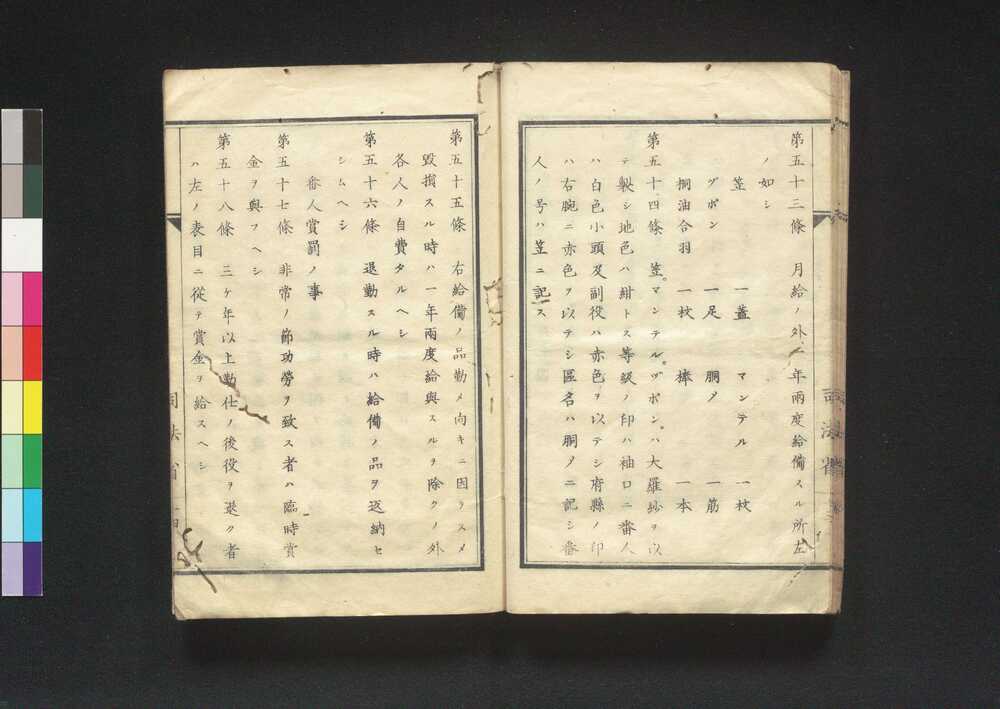 第五十三條 月給ノ外ニ年兩度給備スル所左
ノ如シ
笠 一蓋 マンテル 一枚
ヅボン 一足 胴〆 一筋
桐油合羽 一枚 棒 一本
第五十四條 笠。マンテル。ヅボン。ハ大羅紗ヲ以
テ製シ地色ハ紺トス等級ノ印ハ袖口ニ番人
ハ白色小頭及副役ハ赤色ヲ以テシ府縣ノ印
ハ右腕ニ赤色ヲ以テシ區名ハ胴〆ニ記シ番
人ノ号ハ笠ニ記ス
司法省
第五十五條 右給備ノ品勤メ向キニ因リスメ
毀損スル時ハ一年兩度給與スルヲ除クノ外
各人ノ自費タルヘシ
第五十六條 退勤スル時ハ給備ノ品ヲ返納セ
シムヘシ
番人賞罰ノ事
第五十七條 非常ノ節功勞ヲ致ス者ハ臨時賞
金ヲ與フヘシ
第五十八條 三ケ年以上勤仕ノ後役ヲ退ク者
ハ左ノ表目ニ從テ賞金ヲ給スヘシ
司法省